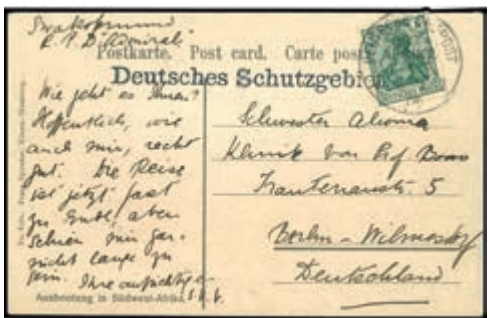 Swakopmund
R.P.D. "Admiral"
Postkarte. Post card. Carte postale.
Deutsches Schutzgebiet
Wie geht es Ihnen?
Hoffentlich, wie
auch mir, recht
gut. Die Reise
ist jetzt fast
zu Ende, aber
schien mir gar
nicht lange zu
sein. Ihre aufrichtige
Ausbeutung in Südwest-Afrika
Schwester
Klinik von Prof
Trautenaustr. 5
Berlin-Wilmersdf
Deutschland